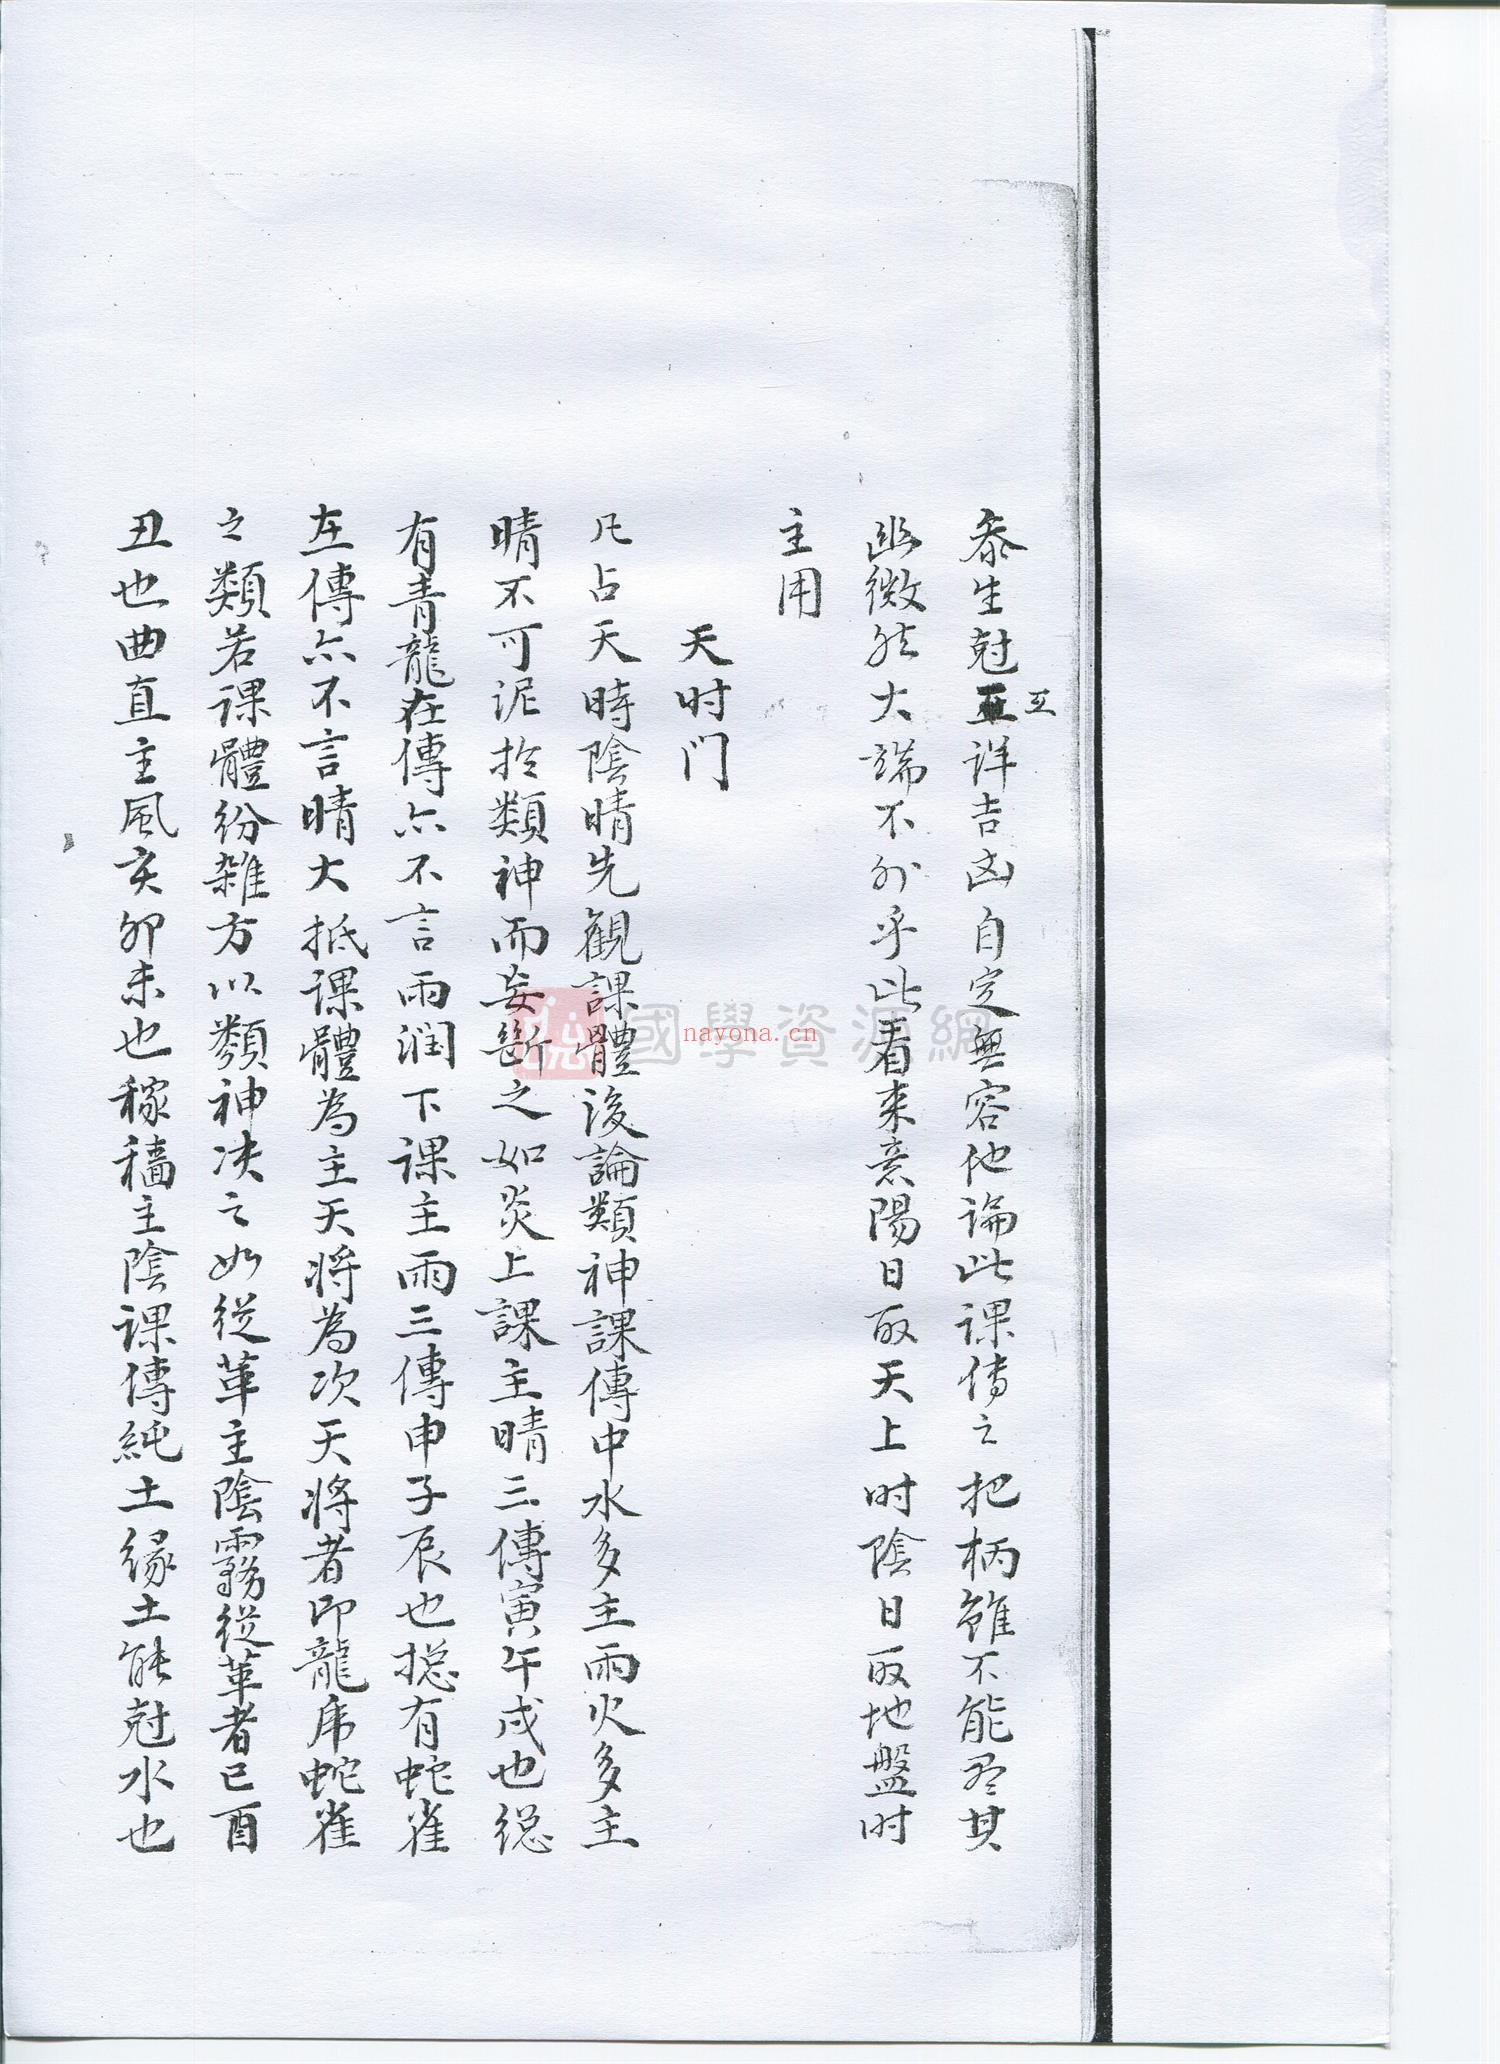 叅生尅互詳吉凶自定無容他論此課傳之把柄雖不能尽其
幽微然大端不外乎此看来意陽日取天上时陰日取地盤时
主用
天时门
凡占天時陰晴先觀課體後論類神課傳中水多主雨火多主
晴不可泥於類神而妄断之如炎上課主晴三傳寅午戌也縂
有青龍在傳亦不言雨潤下課主雨三傳申子辰也摠有蛇雀
在傳亦不言晴大抵課體為主天将為次天将者即龍虎蛇雀
之類若課體紛雜方以類神决之如從革主陰霧從革者巳酉
丑也曲直主風亥卯未也稼穡主陰課傳純土緣土能尅水也
國學資源網
nayona.cn